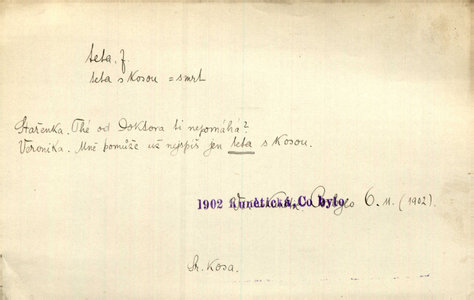 teta, f.
teta s kosou = smrt
Stařenka. Thé od Doktora ti nepomáhá?
Veronika. Mně pomůže už nejspíš jen teta s kosou.
1902 Kunětická, Co bylo 6. 11. (1902).
Sr. kosa.